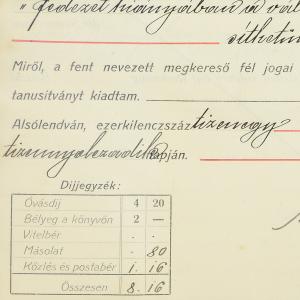 „ fedezet hiányában a vál
sithetni
Miről, a fent nevezett megkereső fél jogai
tanusítványt kiadtam.
Alsólendván, ezerkilenczszáz tizenegy
tizennyolczadik napján.
Díjjegyzék:
Óvásdíj 4 20
Bélyeg a könyvön 2 —
Vitelbér . .
Másolat . 80
Közlés és postabér 1. 16
Összesen 8. 16